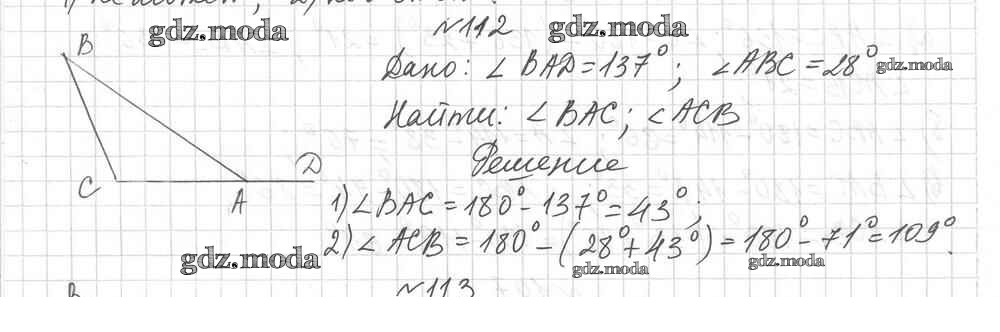 gdz.moda №112 gdz.moda
B Дано: ∠BAD=137°; ∠ABC=28° gdz.moda
Найти: ∠BAC; ∠ACB
Решение
C A D
1) ∠BAC=180°-137°=43°;
2) ∠ACB=180°-(28°+43°)=180°-71°=109°.
gdz.moda gdz.moda gdz.moda
B №113